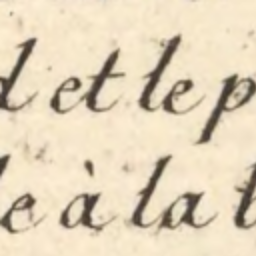 et le p
e à la l